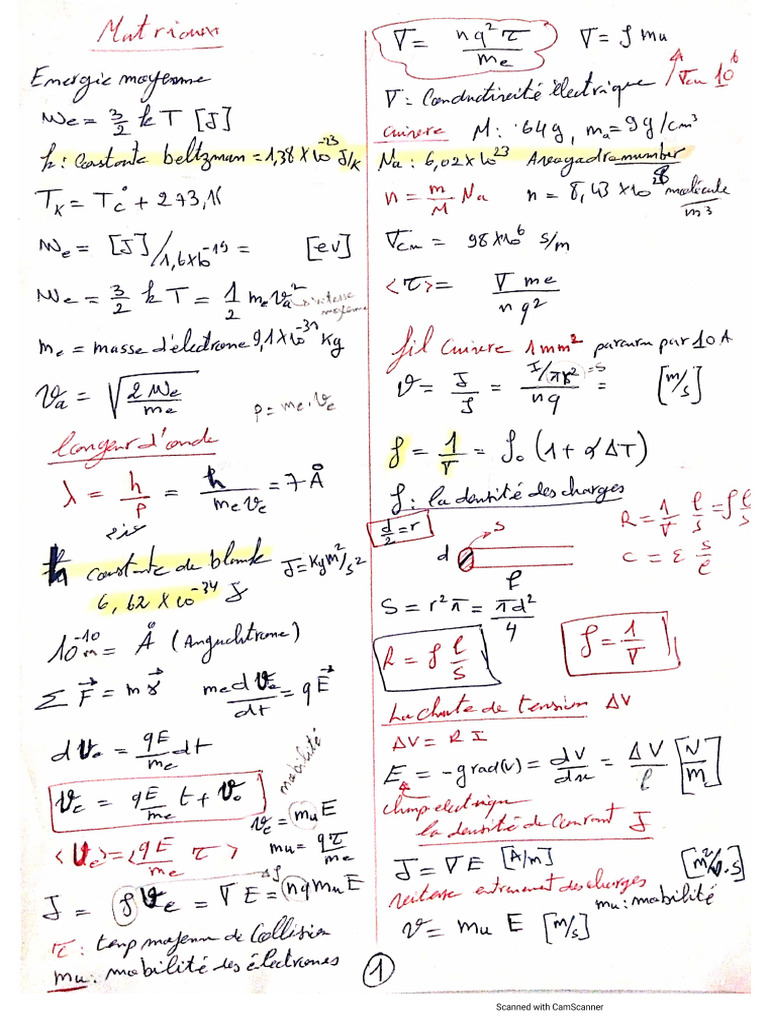 Matriaux
Energie moyenne
We = 3/2 k T [J]
k : Constante beltzman = 1,38 x 10^-23 J/K
T_K = T_C° + 273,16
We = [J] / 1,6 x 10^-19 = [ev]
We = 3/2 k T = 1/2 m_e v_a^2 vitesse moyenne
m_e = masse d'électrone 9,1 x 10^-31 Kg
v_a = √(2 We / m_e)
p = m_e . v_e
longeur d'onde
λ = h/p = h / (m_e v_e) = 7 Å
عزم
h constante de blank J = Kg m^2/s^2
6,62 x 10^-34 J
10^-10 m = Å (Anguchtrome)
Σ F = m γ m_e dv_e / dt = q E
d v_e = qE/m_e dt
v_e = qE/m_e t + v_0
mobilité
v_e = mu E
<v_e> = <qE/m_e τ>
mu = qτ/m_e
J = ρ v_e = Γ E = n q mu E
τ : temp moyenne de Collision
mu : mobilité des électrones
Γ = n q^2 τ / m_e Γ = ρ mu
Γ_cu 10^6
Γ : Conductivité électrique
cuivere M : 64g, m_a = 9g/cm^3
Na : 6,02 x 10^23 Avagadra number
n = m/M Na n = 8,43 x 10^28 molécule/m3
Γ_cu = 98 x 10^6 s/m
<τ> = Γ m_e / n q^2
fil Cuivere 1 mm^2 parcouru par 10 A
v = J/ρ = I/(πr^2)=s / nq = [m/s]
ρ = 1/Γ = ρ_0 (1 + α ΔT)
ρ : la densité des charges
d/2 = r
S
R = 1/Γ l/s = ρ l/s
d
C = ε s/l
l
S = r^2 π = π d^2 / 4
R = ρ l/s
ρ = 1/Γ
La chute de tension ΔV
ΔV = R I
E = - grad(v) = dV/dx = ΔV/l [V/m]
champ electrique
la densité de Courant J
J = Γ E [A/m] [m^2/v.s]
vitesse entrenement des charges
mu : mobilité
v = mu E [m/s]
1
Scanned with CamScanner